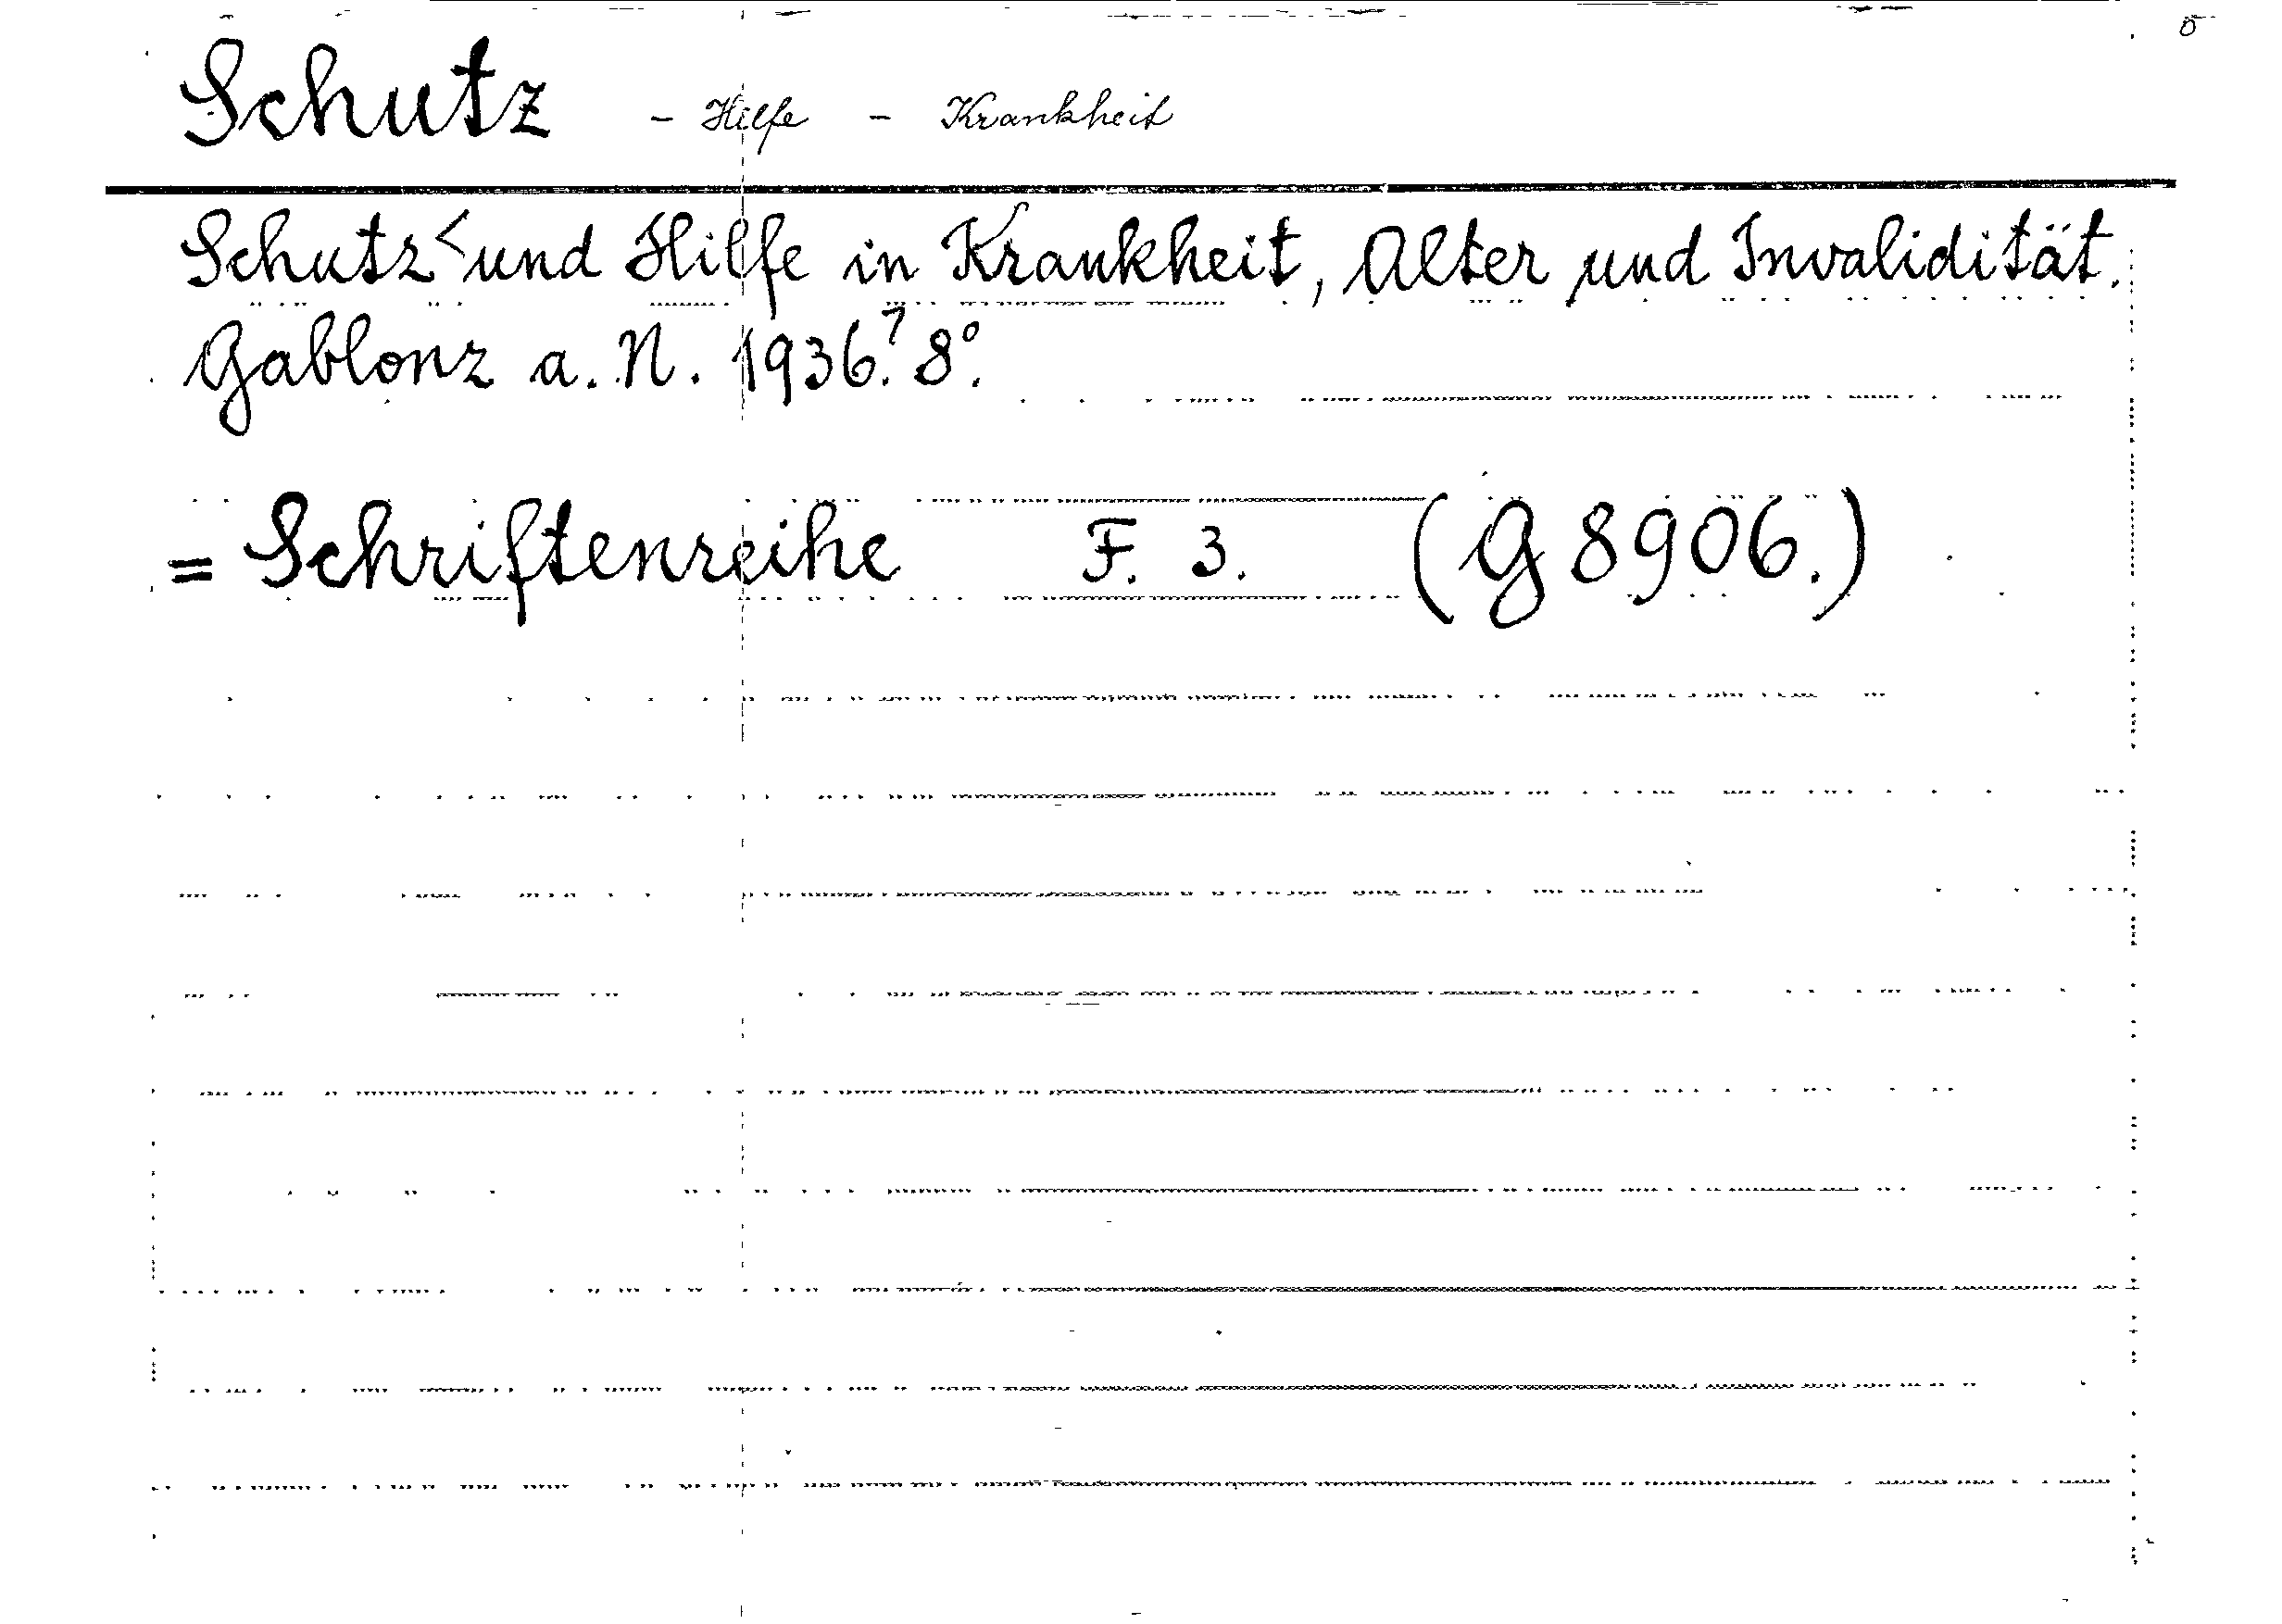 Schutz - Hilfe - Krankheit
Schutz < und Hilfe in Krankheit, Alter und Invalidität.
Gablonz a. N. 1936.? 8°.
= Schriftenreihe F. 3. (G 8906.)